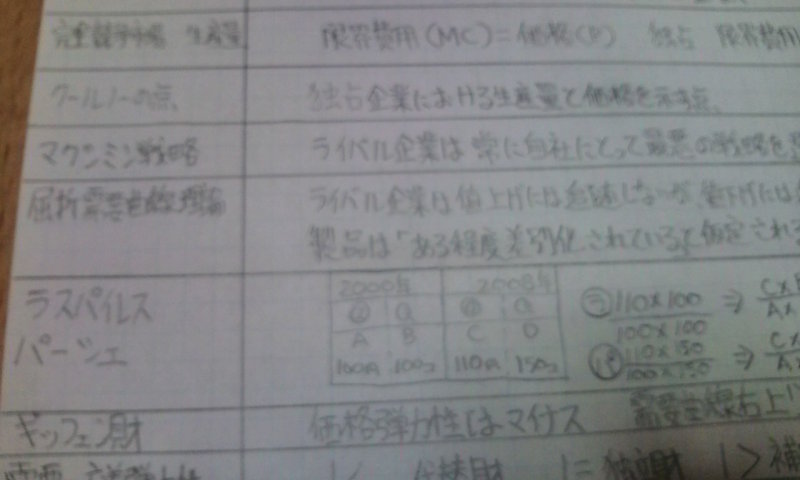 完全競争市場 生産量 限界費用(MC)=価格(P) 独占 限界費用
クールノーの点 独占企業における生産量と価格を示す点
マクシミン戦略 ライバル企業は常に自社にとって最悪の戦略を
屈折需要曲線理論 ライバル企業は値上げには追随しないが値下げには
製品は「ある程度差別化されている」と仮定される
ラスパイレス
パーシェ
2000年 2008年
P Q P Q
A B C D
100円 100コ 110円 150コ
ラ 110×100 / 100×100 ⇒
パ 110×150 / 100×150 ⇒
ギッフェン財 価格弾力性はマイナス 需要曲線右上
代替財 1= 独立財 1>補